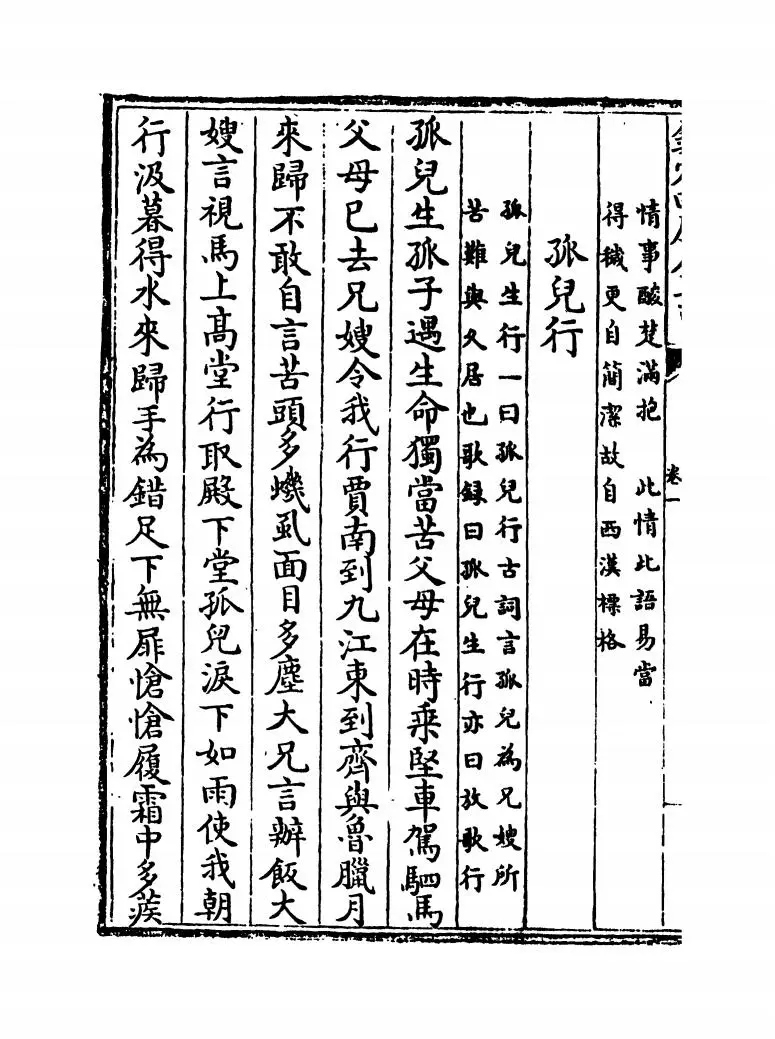 欽定四庫全書
卷一
情事酸楚滿抱　此情此語易當
得穢更自簡潔故自西漢標格
孤兒行
孤兒生行一曰孤兒行古詞言孤兒為兄嫂所
苦難與久居也歌録曰孤兒生行亦曰放歌行
孤兒生孤子遇生命獨當苦父母在時乘堅車駕駟馬
父母已去兄嫂令我行賈南到九江東到齊與魯臘月
來歸不敢自言苦頭多蟣虱面目多塵大兄言辦飯大
嫂言視馬上髙堂行取殿下堂孤兒淚下如雨使我朝
行汲暮得水來歸手為錯足下無屝愴愴履霜中多蒺